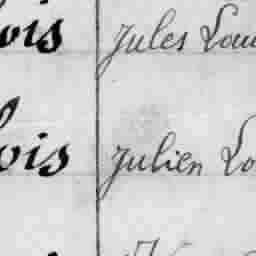 ois Jules Lou
ois Julien Lo